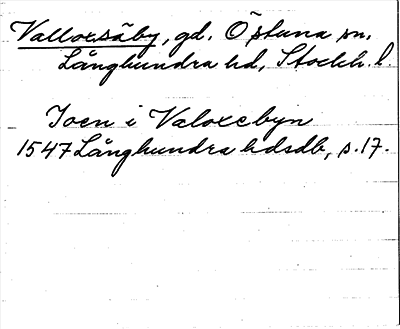 Valloxsäby, gd. Östuna sn.
Långhundra hd, Stockh. l.
Joen i Valoxebyn
1547 Långhundra hdsdb, s. 17.